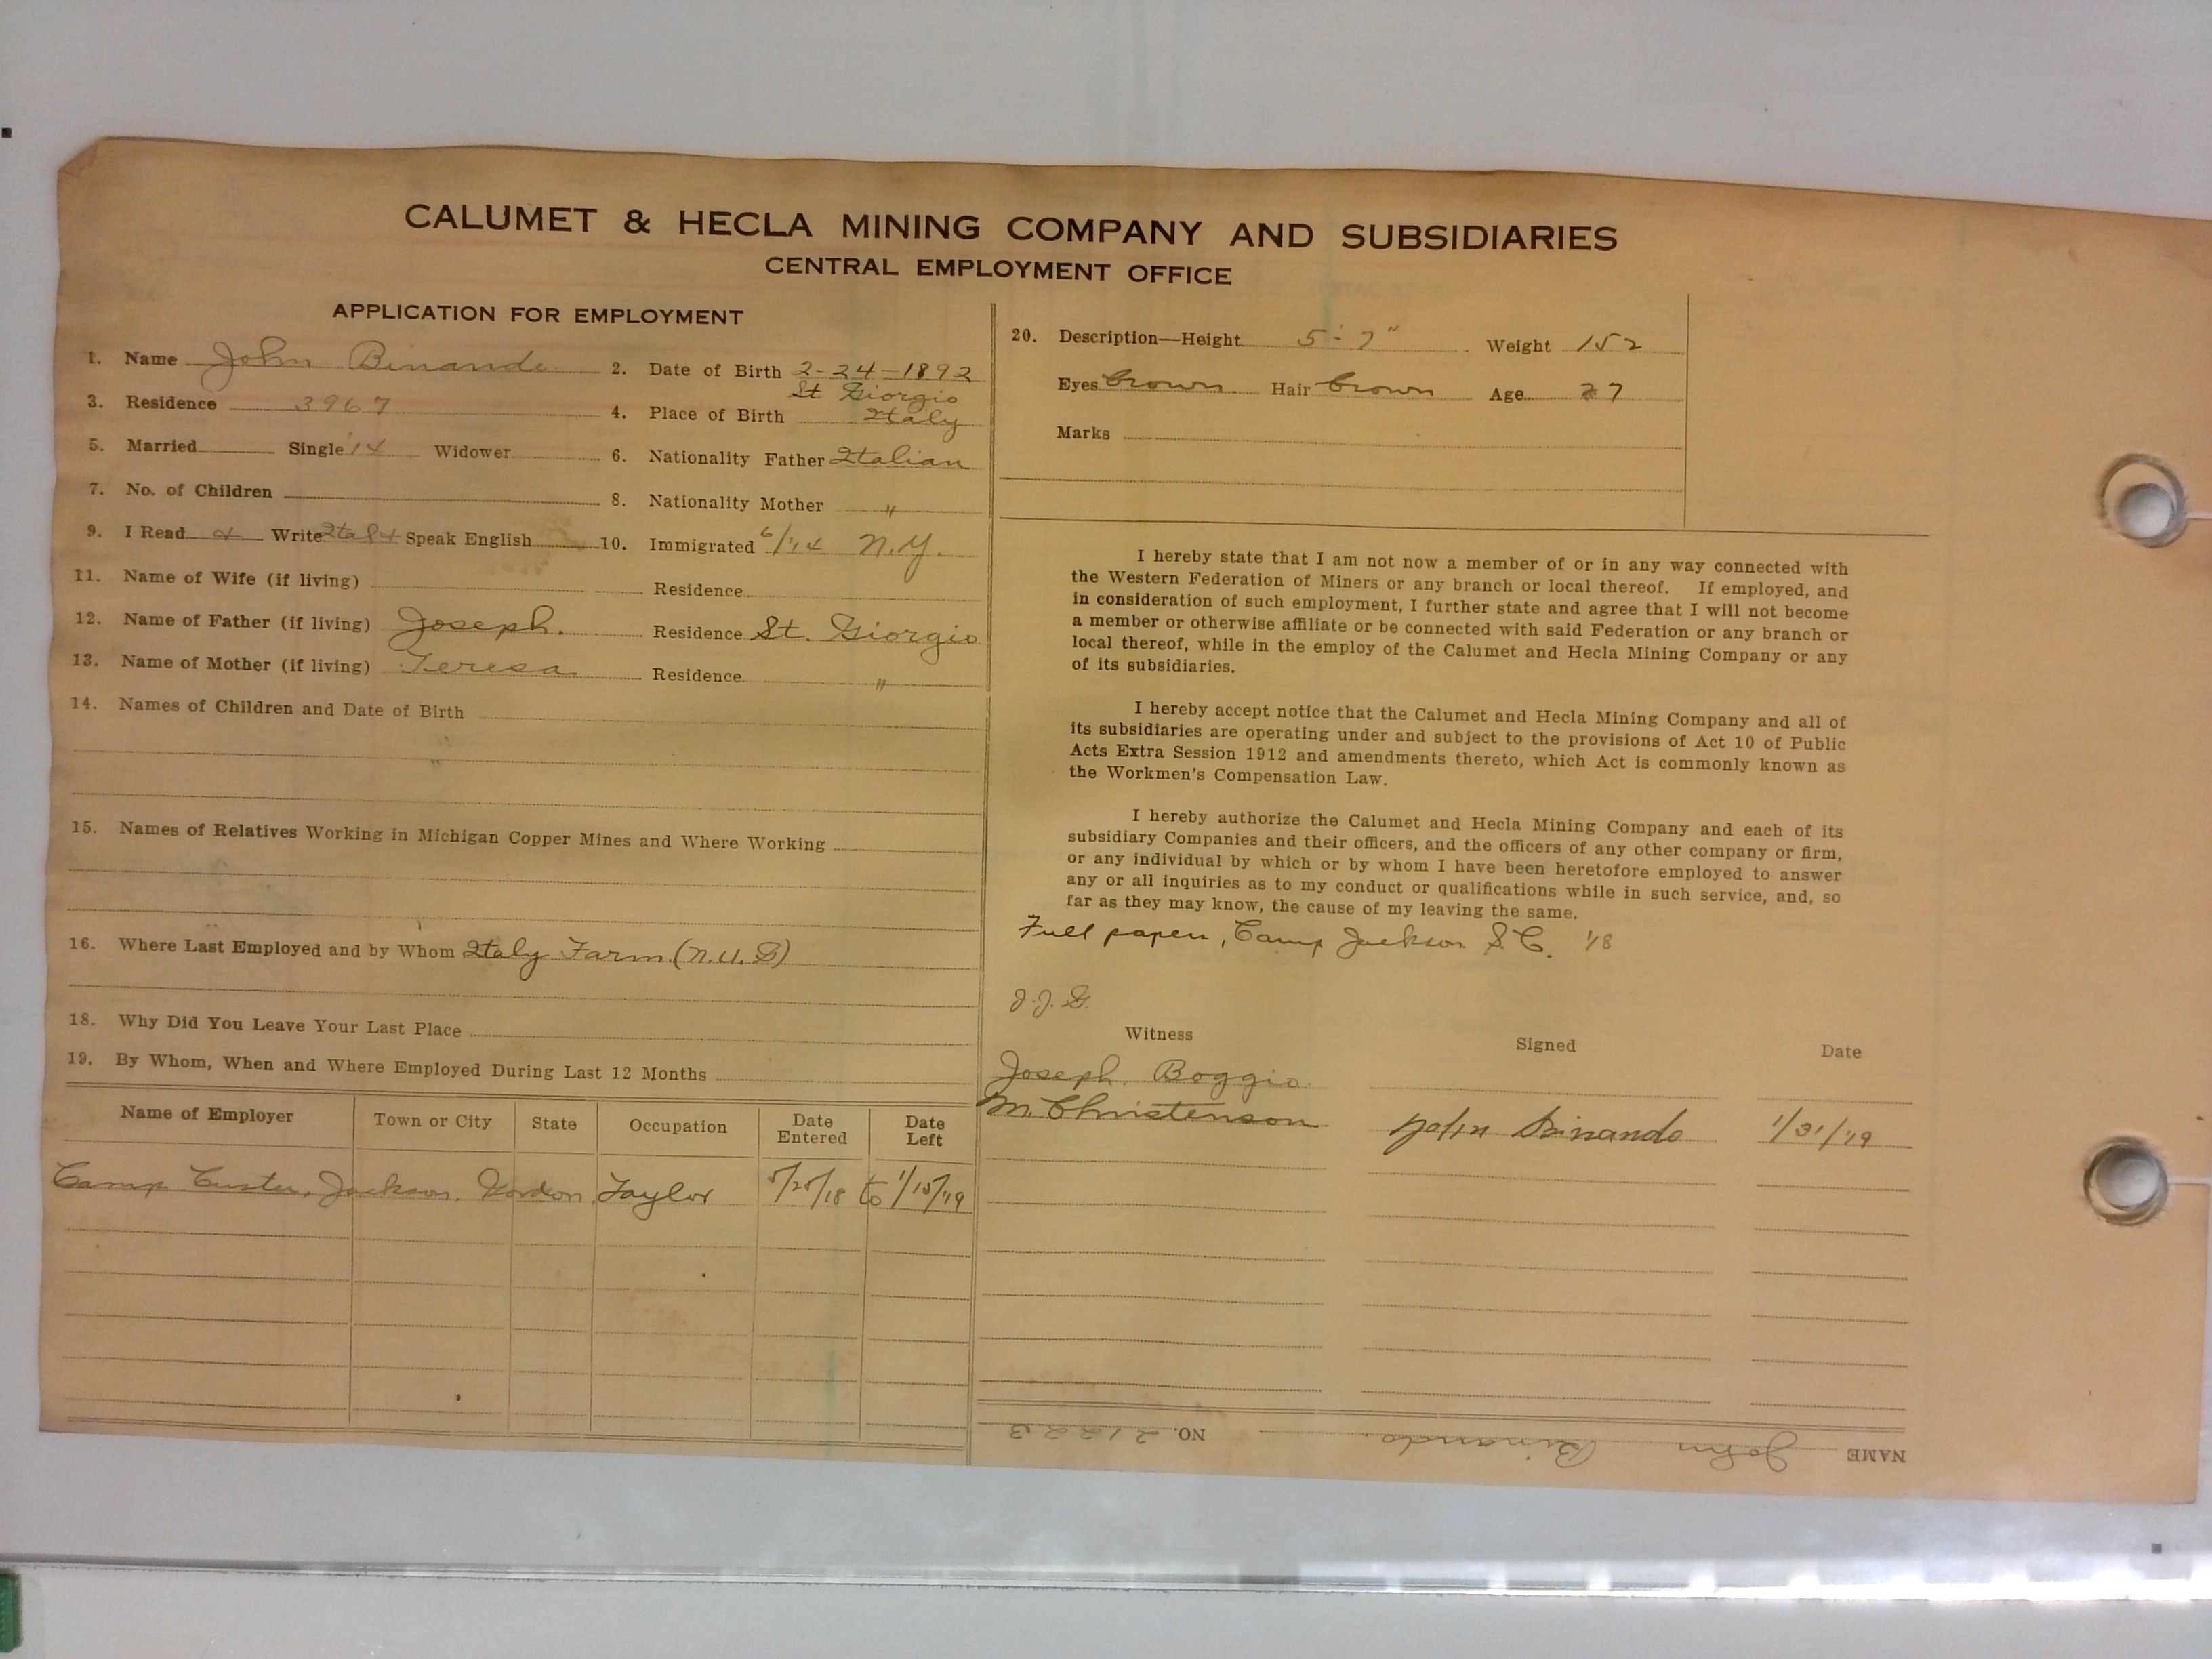 CALUMET & HECLA MINING COMPANY AND SUBSIDIARIES
CENTRAL EMPLOYMENT OFFICE
APPLICATION FOR EMPLOYMENT
1. Name John Binando 2. Date of Birth 2-24-1892
3. Residence 3967 4. Place of Birth St Giorgio Italy
5. Married Single '14 Widower 6. Nationality Father Italian
7. No. of Children 8. Nationality Mother "
9. I Read & Write Ital & Speak English 10. Immigrated 6/14 N.Y.
11. Name of Wife (if living) Residence
12. Name of Father (if living) Joseph. Residence St. Giorgio
13. Name of Mother (if living) Teresa Residence "
14. Names of Children and Date of Birth
15. Names of Relatives Working in Michigan Copper Mines and Where Working
16. Where Last Employed and by Whom Italy Farm (N.U.S)
18. Why Did You Leave Your Last Place
19. By Whom, When and Where Employed During Last 12 Months
Name of Employer Town or City State Occupation Date Entered Date Left
Camp Custer, Jackson, Gordon, Taylor 5/25/18 to 1/15/19
20. Description—Height 5-7" Weight 152
Eyes brown Hair brown Age 27
Marks
I hereby state that I am not now a member of or in any way connected with
the Western Federation of Miners or any branch or local thereof. If employed, and
in consideration of such employment, I further state and agree that I will not become
a member or otherwise affiliate or be connected with said Federation or any branch or
local thereof, while in the employ of the Calumet and Hecla Mining Company or any
of its subsidiaries.
I hereby accept notice that the Calumet and Hecla Mining Company and all of
its subsidiaries are operating under and subject to the provisions of Act 10 of Public
Acts Extra Session 1912 and amendments thereto, which Act is commonly known as
the Workmen's Compensation Law.
I hereby authorize the Calumet and Hecla Mining Company and each of its
subsidiary Companies and their officers, and the officers of any other company or firm,
or any individual by which or by whom I have been heretofore employed to answer
any or all inquiries as to my conduct or qualifications while in such service, and, so
far as they may know, the cause of my leaving the same.
Full papers, Camp Jackson S.C. '18
J.J.G.
Witness Signed Date
Joseph Boggio
M. Christenson John Binando 1/31/19
NAME John Binando. NO. 21223